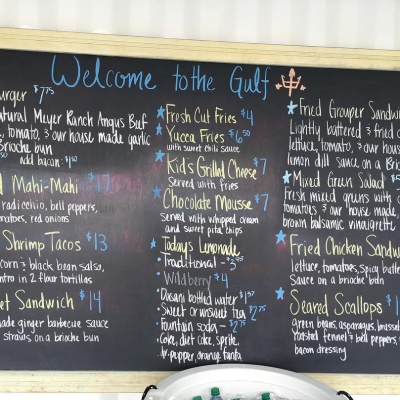 Welcome to the Gulf
urger $7.75
atural Meyer Ranch Angus Beef
, tomato, & our house made garlic
Brioche bun
add bacon
Mahi-Mahi $17
radicchio, bell peppers,
red onions
Shrimp Tacos $13
corn & black bean salsa,
in 2 flour tortillas
Sandwich $14
made ginger barbecue sauce
straws on a brioche bun
Fresh Cut Fries $4
Yucca Fries $6.50
with sweet chili sauce
Kid's Grilled Cheese $7
Served with fries
Chocolate Mousse $7
Served with whipped cream
and sweet pita chips
Today's Lemonade
Traditional -
Wildberry $4
Dasani bottled water
Sweet or unsweet tea $2.75
Fountain soda - $2.75
Coke, diet coke, sprite,
dr. pepper, orange fanta
Fried Grouper Sandw
Lightly battered & fried
lettuce, tomato, & our hous
lemon dill sauce on a Brio
Mixed Green Salad
Fresh mixed greens with
tomatoes & our house made
brown balsamic vinaigrette
Fried Chicken Sandw
lettuce, tomatoes, spicy butte
Sauce on a brioche bun
Seared Scallops
green beans, asparagus, brussel
roasted fennel & bell peppers,
bacon dressing